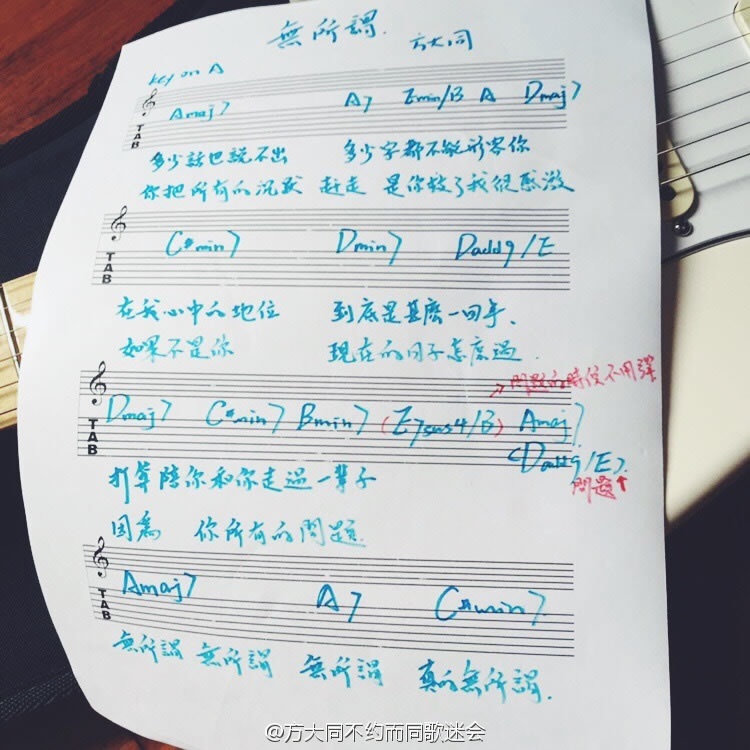 無所謂. 方大同
key on A
Amaj7 A7 Emin/B A Dmaj7
TAB
多少話也說不出 多少字都不能形容你
你把所有的沉默 赶走 是你救了我很感激
C#min7 Dmin7 Dadd9/E
TAB
在我心中的地位 到底是甚麼一回事.
如果不是你 現在的日子怎麼過.
問題的時候不用彈
Dmaj7 C#min7 Bmin7 (E7sus4/B) Amaj7
TAB
(Dadd9/E).
打算陪你和你走過一輩子 問題↑
因為 你所有的問題.
Amaj7 A7 C#min7
TAB
無所謂 無所謂 無所謂 真的無所謂.
@方大同不约而同歌迷会